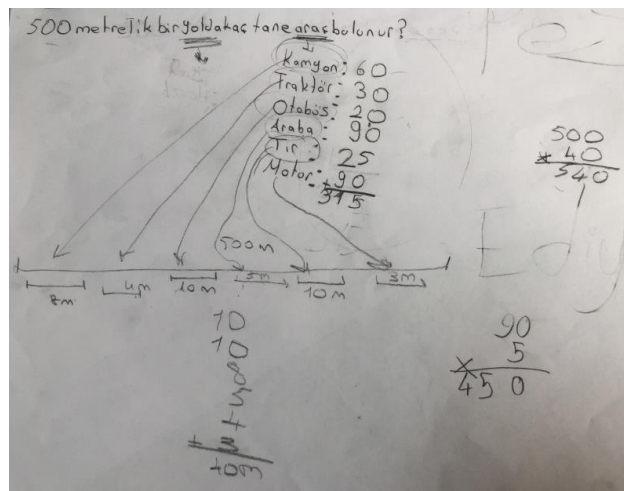 500 metrelik bir yolda kaç tane araç bulunur?
Kamyon: 60
Traktör: 30
Otobüs: 20
Araba: 90
Tır: 25
Motor: +90
315
500m
8m
4m
10m
5m
10m
3m
10
10
8
5
4
+ 3
40m
500
x 40
540
Ediy
90
x 5
450